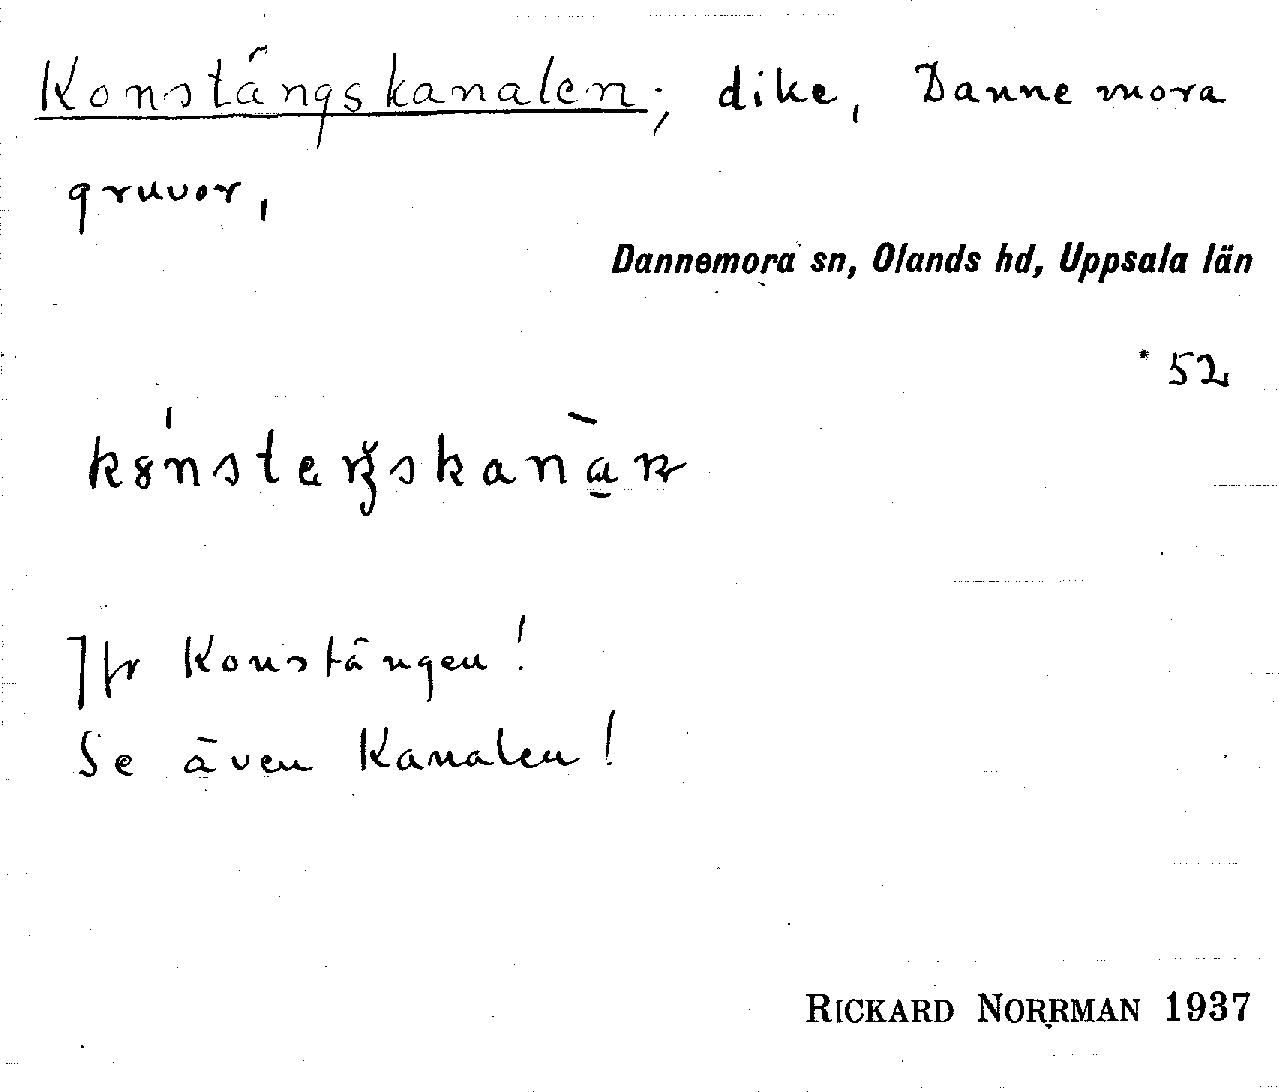 Konstångskanalen; dike, Dannemora
gruvor,
Dannemora sn, Olands hd, Uppsala län
* 52
Jfr Konstängen!
Se även Kanalen!
RICKARD NORRMAN 1937